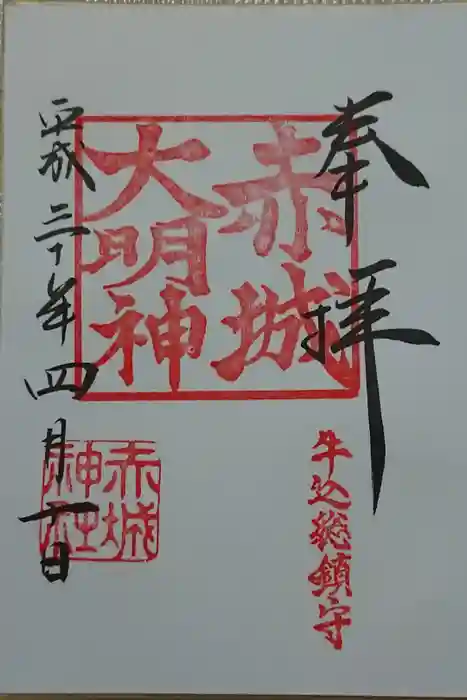 奉拝
赤城
大明神
牛込総鎮守
平成三十年四月十一日
赤城
神社